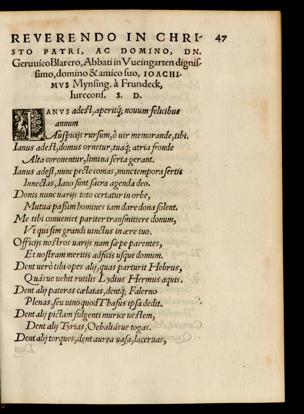 REVERENDO IN CHRI- 47
STO PATRI, AC DOMINO, DN.
Geruuico Blarero, Abbati in Vueingarten dignis-
simo, domino & amico suo, IOACHI-
MVS Mynsing. à Frundeck,
Iurecons. S. D.
IANVS adest, aperitq; nouum felicibus
annum
Auspicijs rursum, ò uir memorande, tibi.
Ianus adest, domus ornetur, tuaq; atria fronde
Alta coronentur, limina serta gerant.
Ianus adest, nunc pecte comas, nunc tempora sertis
Innectas, Iano sunt sacra agenda deo.
Donis nunc uarijs toto certatur in orbe,
Mutua passim homines iam dare dona solent.
Me tibi conueniet pariter transmittere donum,
Vt qui sim grandi uinctus in ære tuo.
Officijs nostros uarijs nam sæpe parentes,
Et nostram meritis adficis usque domum.
Dent uerò tibi opes alij, quas parturit Hebrus,
Quásue uehit rutilis Lydius Hermus aquis.
Dent alij pateras cælatas, dentq; Falerno
Plenas, seu uino quod Thasus ipsa dedit.
Dent alij pictam fulgenti murice uestem,
Dent alij Tyrias, Oebaliásue togas.
Dent alij torques, dent aurea uasa, lacernas,